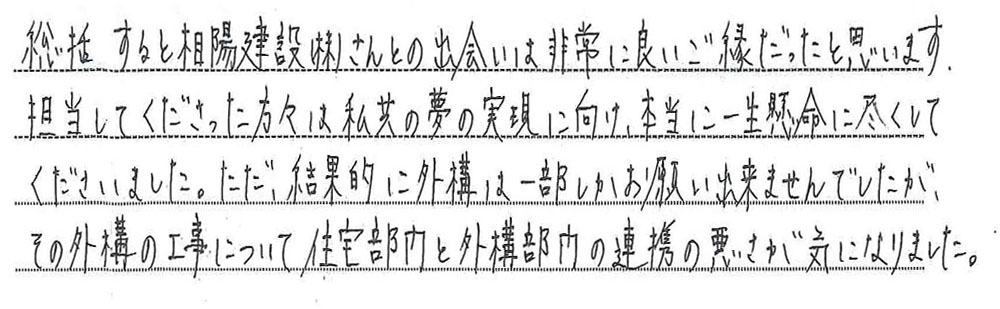 総括すると相陽建設(株)さんとの出会いは非常に良いご縁だったと思います.
担当してくださった方々は私共の夢の実現に向け、本当に一生懸命に尽くして
くださいました。ただ、結果的に外構は一部しかお願い出来ませんでしたが、
その外構の工事について住宅部内と外構部内の連携の悪いさが気になりました。